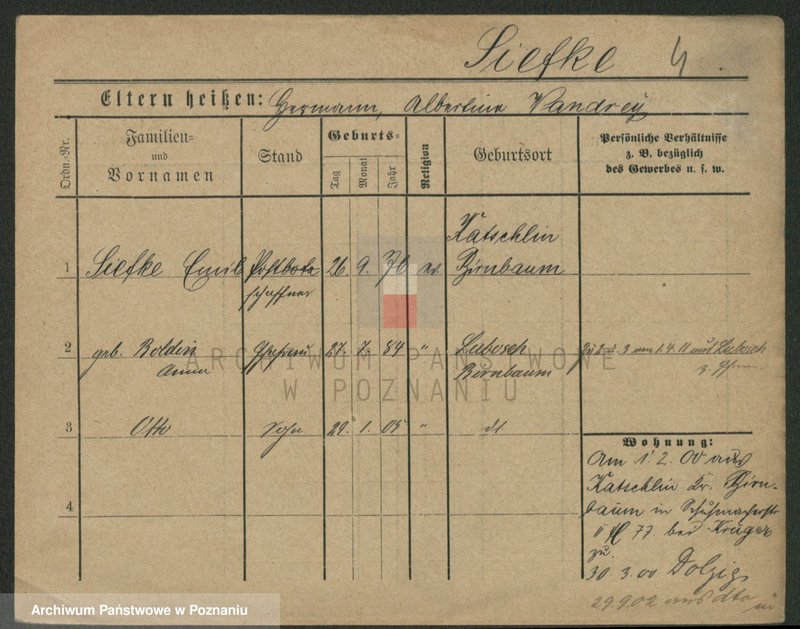 Siefke 4
Eltern heißen: Hermann, Albertine Vandrey
Ordn.-Nr.
Familien=
und
Vornamen
Stand
Geburts=
Tag
Monat
Jahr
Religion
Geburtsort
Persönliche Verhältnisse
z. B. bezüglich
des Gewerbes u. s. w.
1 Siefke Emil Postbote 26. 9. 76 ev. Katschlin
Birnbaum
schaffner
2 geb. Boldin Ehefrau 27. 7. 84 " Lubosch
Birnbaum
Anna
Zu 2 u. 3 am 1.4.11 aus Lubosch
z. Ehem.
3 Otto Sohn 29. 1. 05 " dt
4
Wohnung:
Am 1. 2. 00 aus
Katschlin Kr. Birn-
baum in Schuhmacherstr
77 bei Krüger
zu.
30. 3. 00 Dolzig
29.9.02 aus dto
in
ARCHIWUM PAŃSTWOWE
W POZNANIU
Archiwum Państwowe w Poznaniu